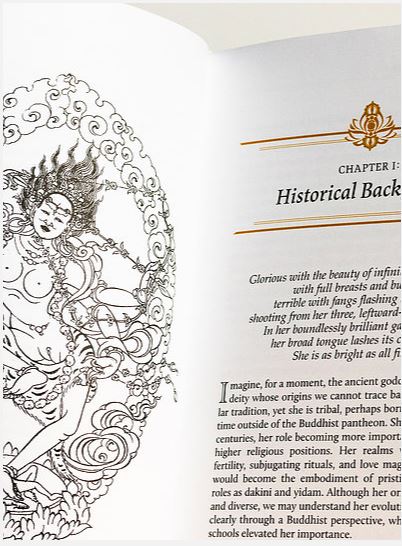 CHAPTER I:
Historical Back
Glorious with the beauty of infini
with full breasts and bu
terrible with fangs flashing
shooting from her three, leftward-
In her boundlessly brilliant ga
her broad tongue lashes its c
She is as bright as all fi
Imagine, for a moment, the ancient godd
deity whose origins we cannot trace ba
lar tradition, yet she is tribal, perhaps born
time outside of the Buddhist pantheon. Sh
centuries, her role becoming more import
higher religious positions. Her realms
fertility, subjugating rituals, and love mag
would become the embodiment of pristi
roles as dakini and yidam. Although her or
and diverse, we may understand her evolut
clearly through a Buddhist perspective, wh
schools elevated her importance.